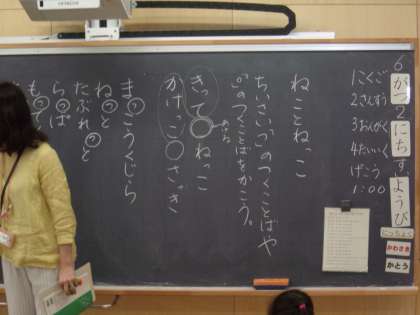 6がつ2にちすいようび
1こくご
2さんすう
3おんがく
4たいいく
げこう
1:00
にっちょく
かわさき
かとう
ねことねっこ
ちいさい「っ」のつくことばや
「っ」のつくことばをかこう。
きって ねっこ
かけっこ ざっき
まっこうくじら
ねっと
たぶれっと
らっぱ
もって
HITACHI